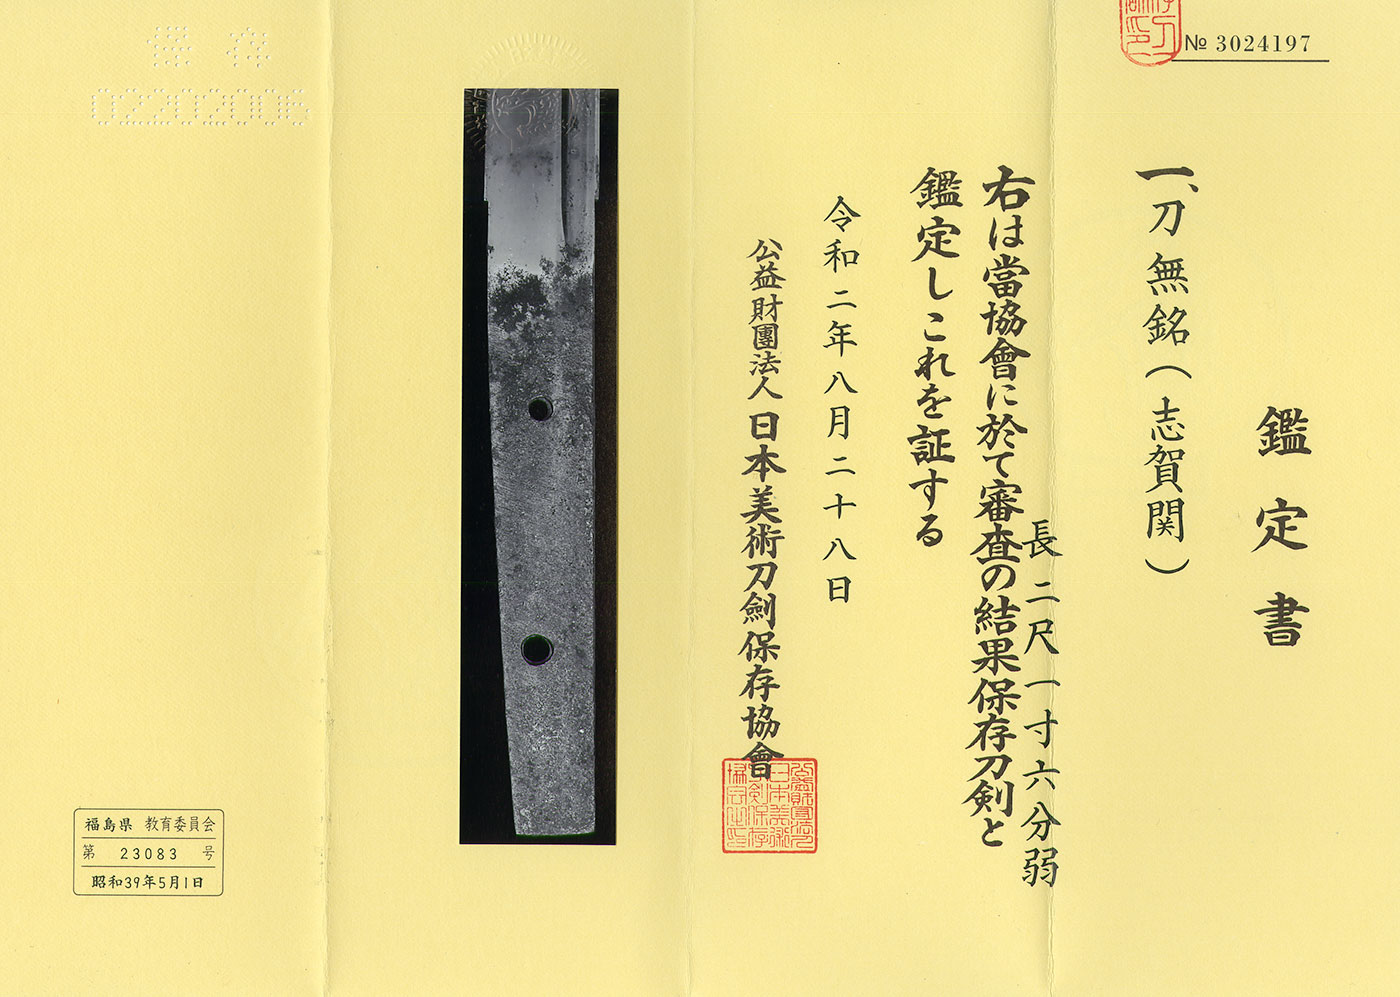 № 3024197
鑑定書
一、刀 無銘(志賀関)
長二尺一寸六分弱
右は當協會に於て審査の結果保存刀剣と
鑑定しこれを証する
令和二年八月二十八日
公益財團法人日本美術刀劍保存協會
保存
02202006
福島県 教育委員会
第 23083 号
昭和39年5月1日